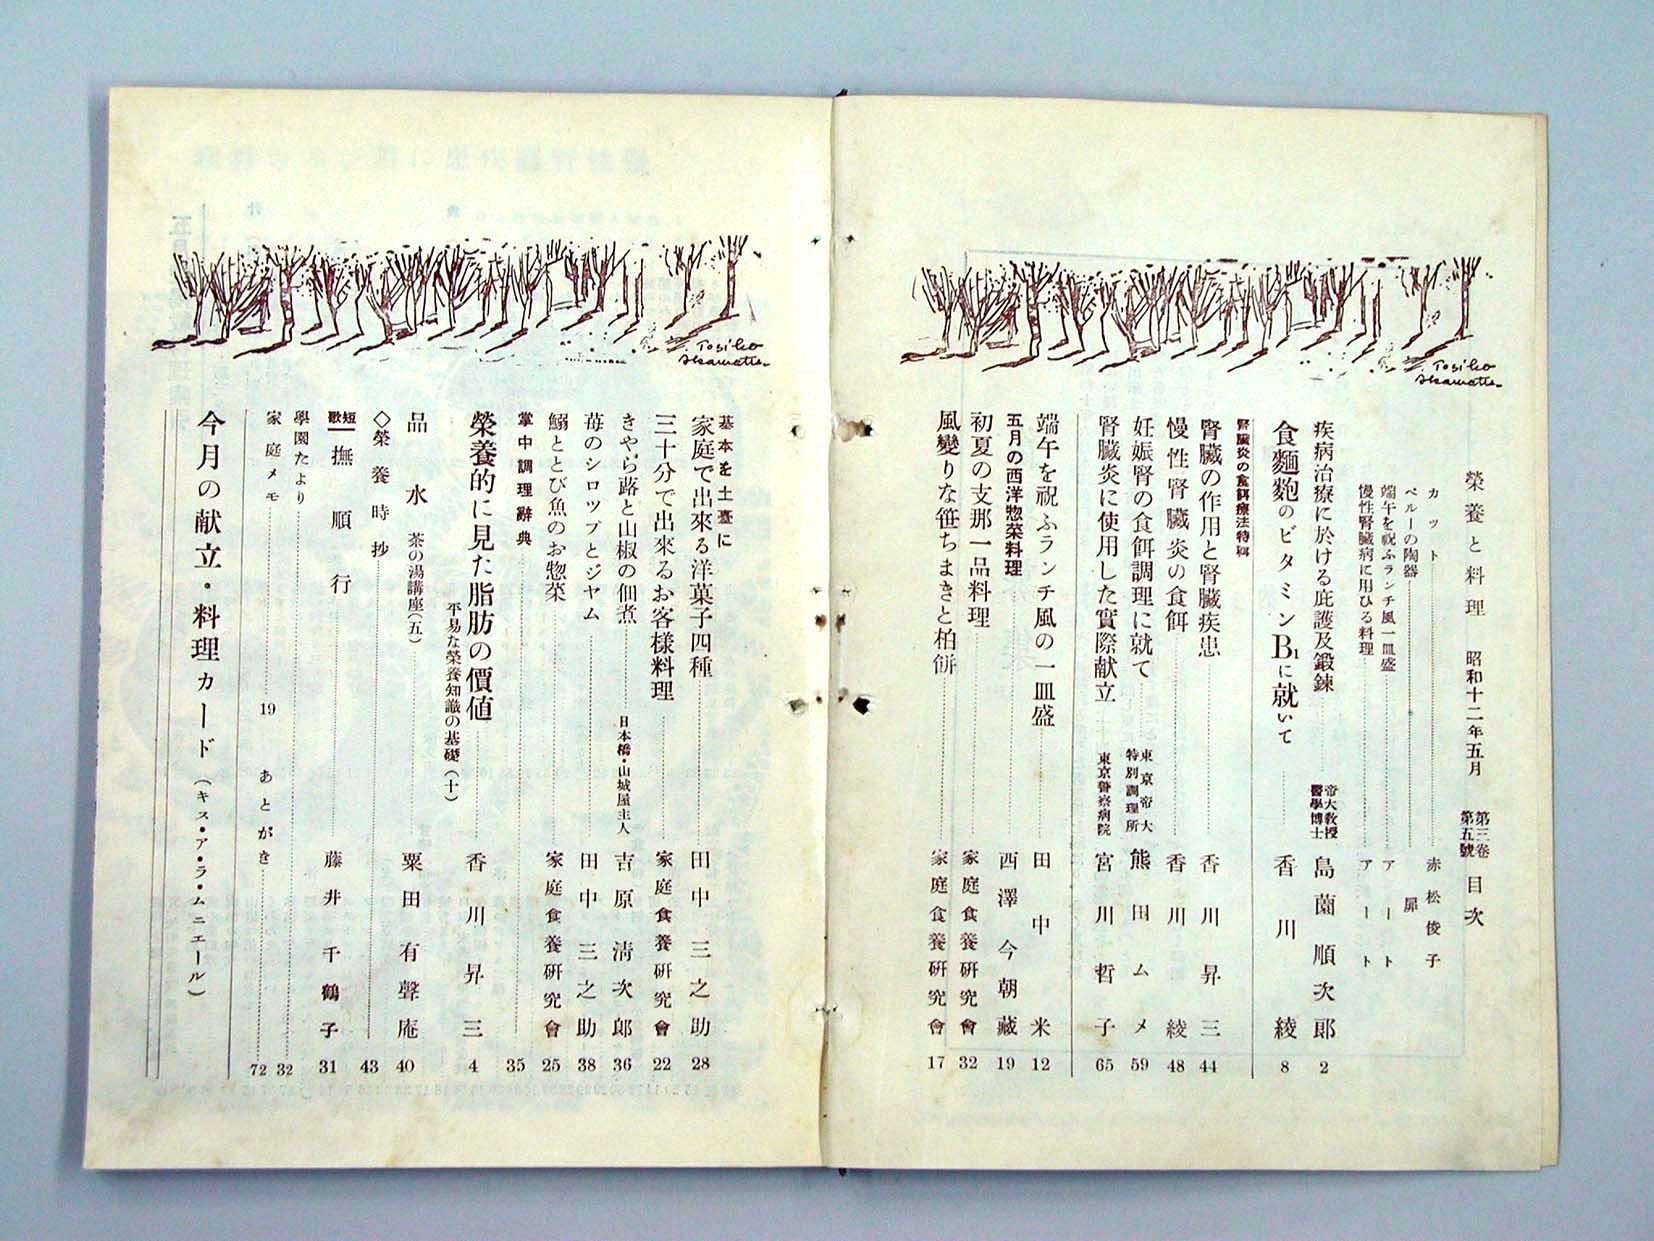 榮養と料理 昭和十二年五月 第三卷第五號 目次
カット 赤松俊子
ペルーの陶器 扉
端午を祝ふランチ風一皿盛 アート
慢性腎臓病に用ひる料理 アート
疾病治療に於ける庇護及鍛錬 帝大教授醫學博士 島薗順次郎 2
食麵麭のビタミンB1に就いて 香川綾 8
腎臓炎の食餌療法特輯
腎臓の作用と腎臓疾患 香川昇三 44
慢性腎臓炎の食餌 香川綾 48
妊娠腎の食餌調理に就て 東京帝大特別調理所 熊田ムメ 59
腎臓炎に使用した實際献立 東京警察病院 宮川哲子 65
端午を祝ふランチ風の一皿盛 田中米 12
五月の西洋惣菜料理 西澤今朝藏 19
初夏の支那一品料理 家庭食養研究會 32
風變りな笹ちまきと柏餅 家庭食養研究會 17
Tosiko Akamatu
基本を土臺に
家庭で出來る洋菓子四種 田中三之助 28
三十分で出來るお客樣料理 家庭食養研究會 22
きやら蕗と山椒の佃煮 日本橋・山城屋主人 吉原淸次郎 36
苺のシロップとジヤム 田中三之助 38
鰯ととび魚のお惣菜 家庭食養研究會 25
掌中調理辭典 35
榮養的に見た脂肪の價値 香川昇三 4
平易な榮養知識の基礎(十)
品水 茶の湯講座(五) 粟田有聲庵 40
◇榮養時抄 43
短歌 撫順行 藤井千鶴子 31
學園たより 32
家庭メモ 19 あとがき 72
今月の献立・料理カード(キス・ア・ラ・ムニエール)
Tosiko Akamatu